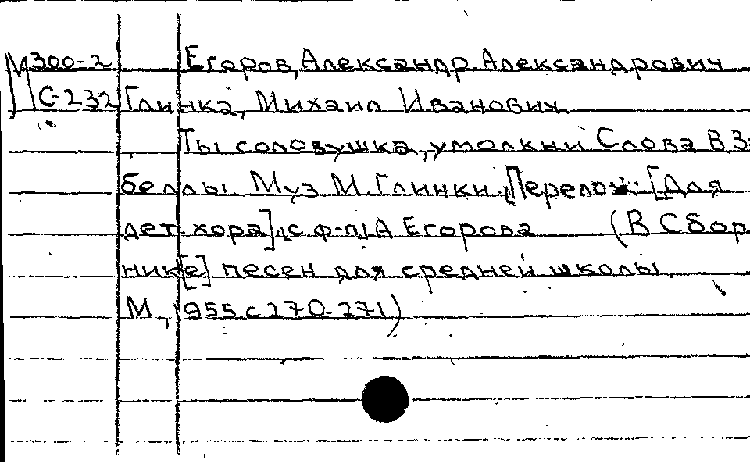 М300-2 Егоров, Александр Александрович
С-232 Глинка, Михаил Иванович
Ты соловушка, умолкни Слова В.За-
беллы. Муз М. Глинки. Перелож. [Для
дет. хора] с ф-п А Егорова (В Сбор
ник[е] песен для средней школы.
М., 1955 с 270-271)